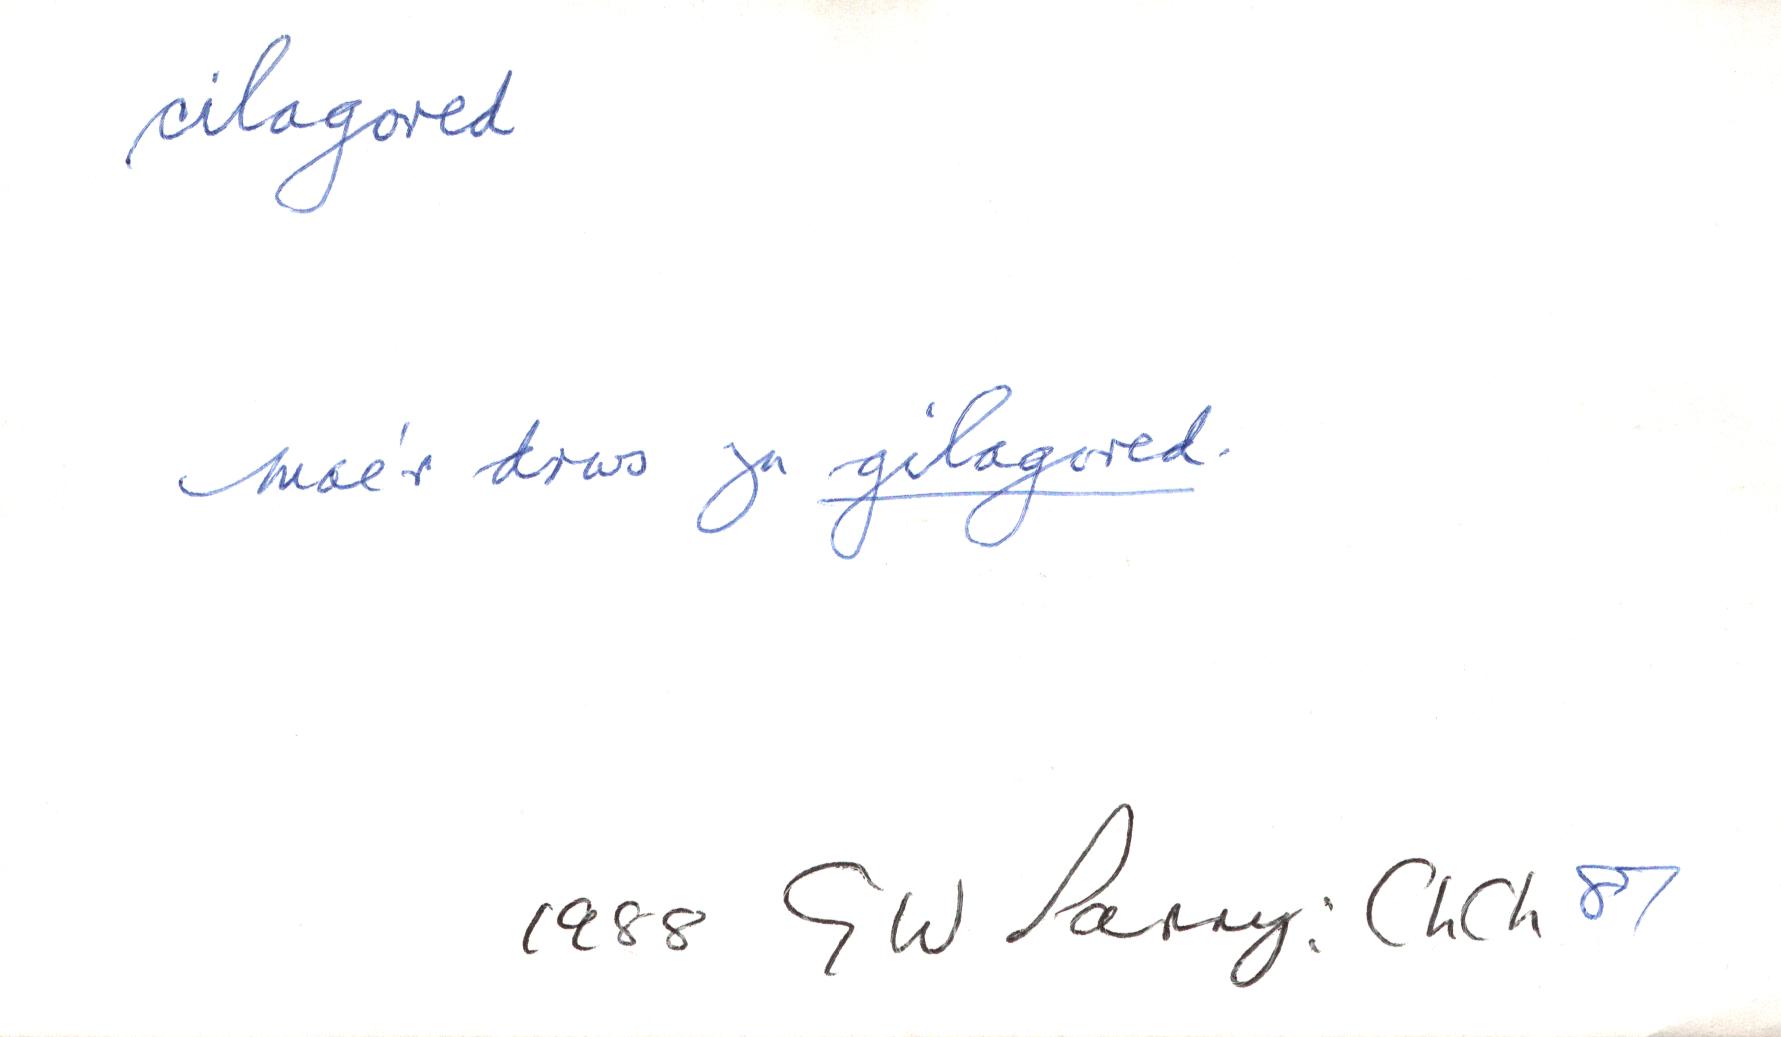 cilagored
mae'r drws yn gilagored.
1988 GW Parry: ChCh 87